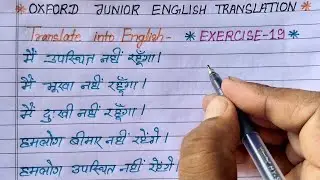 * OXFORD JUNIOR ENGLISH TRANSLATION *
Translate into English- * EXERCISE-19 *
मैं उपस्थित नहीं रहूँगा।
मैं भूखा नहीं रहूँगा।
मैं दुःखी नहीं रहूँगा।
हमलोग बीमार नहीं रहेंगे।
हमलोग उपस्थित नहीं रहेंगे।